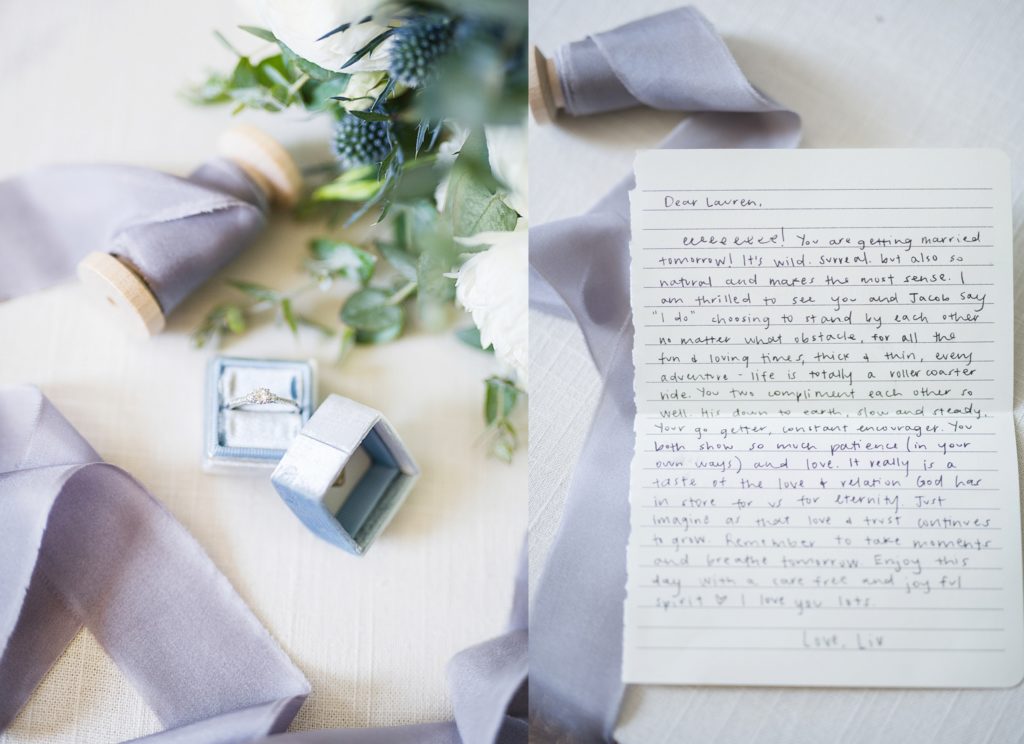 Dear Lauren,
eeeeeeee! You are getting married
tomorrow! It's wild. Surreal. but also so
natural and makes the most sense. I
am thrilled to see you and Jacob say
"I do" choosing to stand by each other
no matter what obstacle, for all the
fun & loving times, thick & thin, every
adventure - life is totally a roller coaster
ride. You two compliment each other so
well. His down to earth, slow and steady,
Your go getter, constant encourager. You
both show so much patience (in your
own ways) and love. It really is a
taste of the love & relation God has
in store for us for eternity Just
imagine as that love & trust continues
to grow. Remember to take moments
and breathe tomorrow. Enjoy this
day with a care free and joy ful
spirit ♡ I love you lots.
Love, Liv